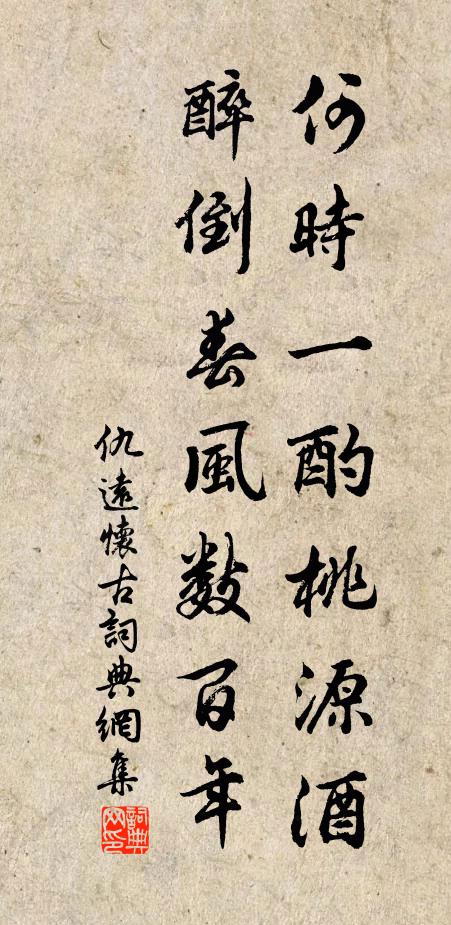 何時一酌桃源酒
醉倒春風數百年
仇遠懷古詞典網集
詞典網印